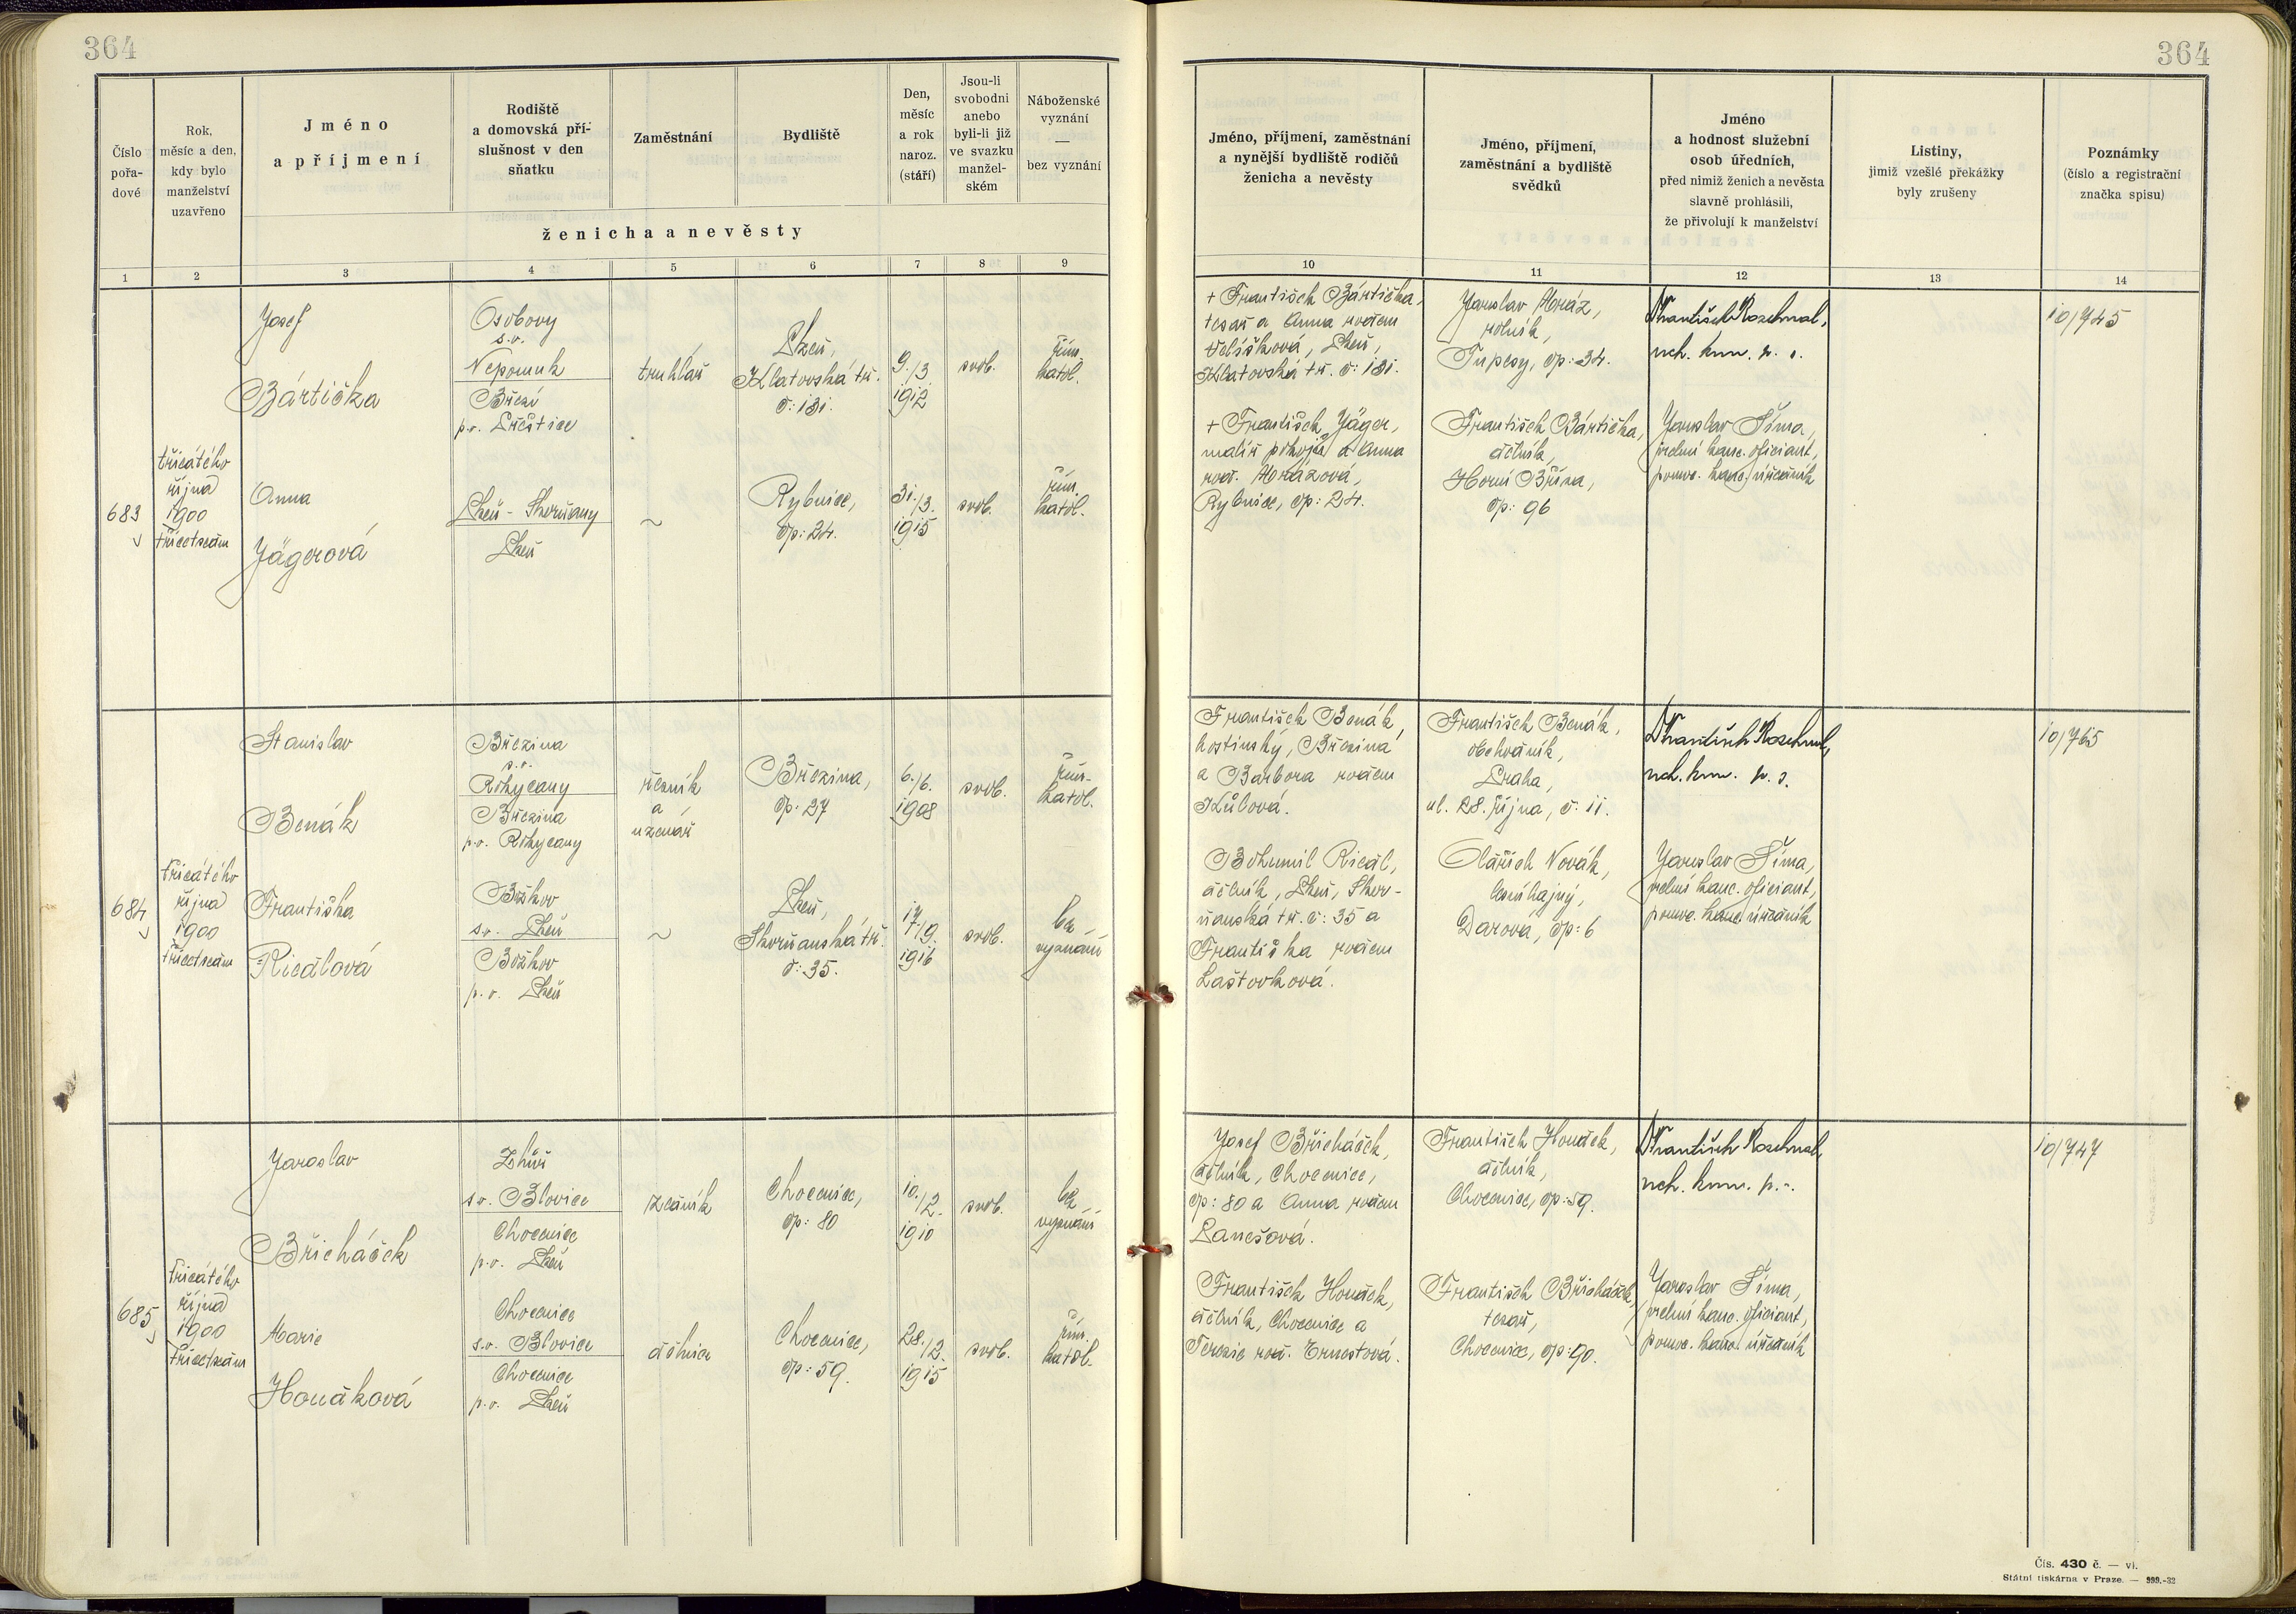 364
364
Číslo
pořa-
dové
Rok,
měsíc a den,
kdy bylo
manželství
uzavřeno
Jméno
a příjmení
Rodiště
a domovská pří-
slušnost v den
sňatku
Zaměstnání
Bydliště
Den,
měsíc
a rok
naroz.
(stáří)
Jsou-li
svobodni
anebo
byli-li již
ve svazku
manžel-
ském
Náboženské
vyznání
—
bez vyznání
ženicha a nevěsty
Jméno, příjmení, zaměstnání
a nynější bydliště rodičů
ženicha a nevěsty
Jméno, příjmení,
zaměstnání a bydliště
svědků
Jméno
a hodnost služební
osob úředních,
před nimiž ženich a nevěsta
slavně prohlásili,
že přivolují k manželství
Listiny,
jimiž vzešlé překážky
byly zrušeny
Poznámky
(číslo a registrační
značka spisu)
1 2 3 4 5 6 7 8 9 10 11 12 13 14
683
třicátého
října
1900
třicetsedm
Josef
Bártička
Osobovy
s.o.
Nepomuk
Březí
p.o. Přeštice
truhlář
Plzeň,
Klatovská tř.
č: 131.
9./3.
1912
svob.
řím.
katol.
Anna
Jägerová
Plzeň - Skvrňany
Plzeň
~
Rybnice,
čp: 24.
31./3.
1915
svob.
řím.
katol.
+ František Bártička,
tesař a Anna rodem
Velíšková, Plzeň,
Klatovská tř. č: 131.
+ František Jäger,
malíř pokojů a Anna
rod. Mrázová,
Rybnice, čp: 24.
Jaroslav Mráz,
rolník,
Tupesy, čp: 34.
František Bártička,
dělník,
Horní Bříza,
čp: 96
František
Jaroslav Šíma,
kanc. oficiant,
pomoc. kanc. úředník
10/745
684
třicátého
října
1900
třicetsedm
Stanislav
Benák
Březina
s.o.
Rokycany
Březina
p.o. Rokycany
řezník
a
uzenář
Březina,
čp: 27
6./6.
1908
svob.
řím.
katol.
Františka
Ricálová
Božkov
s.o. Plzeň
Božkov
p.o. Plzeň
~
Plzeň,
Skvrňanská tř.
č: 35.
17./9.
1916
svob.
bez
vyznání
František Benák,
hostinský, Březina
a Barbora rodem
Kůlová.
Bohumil Ricál,
dělník, Plzeň, Skvr-
ňanská tř. č: 35 a
Františka rodem
Laštovková.
František Benák,
obchodník,
Praha,
ul. 28. října, č: 11.
Oldřich Novák,
lesní hajný,
Darová, čp: 6
František
Jaroslav Šíma,
kanc. oficiant,
pomoc. kanc. úředník
10/765
685
třicátého
října
1900
třicetsedm
Jaroslav
Břicháček
Zhůř
s.o. Blovice
Chocenice
p.o. Plzeň
zedník
Chocenice,
čp: 80
10./2.
1910
svob.
bez
vyznání
Marie
Houdková
Chocenice
s.o. Blovice
Chocenice
p.o. Plzeň
dělnice
Chocenice,
čp: 59.
28./2.
1915
svob.
řím.
katol.
Josef Břicháček,
dělník, Chocenice,
čp: 80 a Anna rodem
Panešová.
František Houdek,
dělník, Chocenice a
Terezie rod. Ernestová.
František Houdek,
dělník,
Chocenice, čp: 59.
František Břicháček,
tesař,
Chocenice, čp: 90.
František
Jaroslav Šíma,
kanc. oficiant,
pomoc. kanc. úředník
10/747
Čís. 430 č. — vl.
Státní tiskárna v Praze. — 999.-32